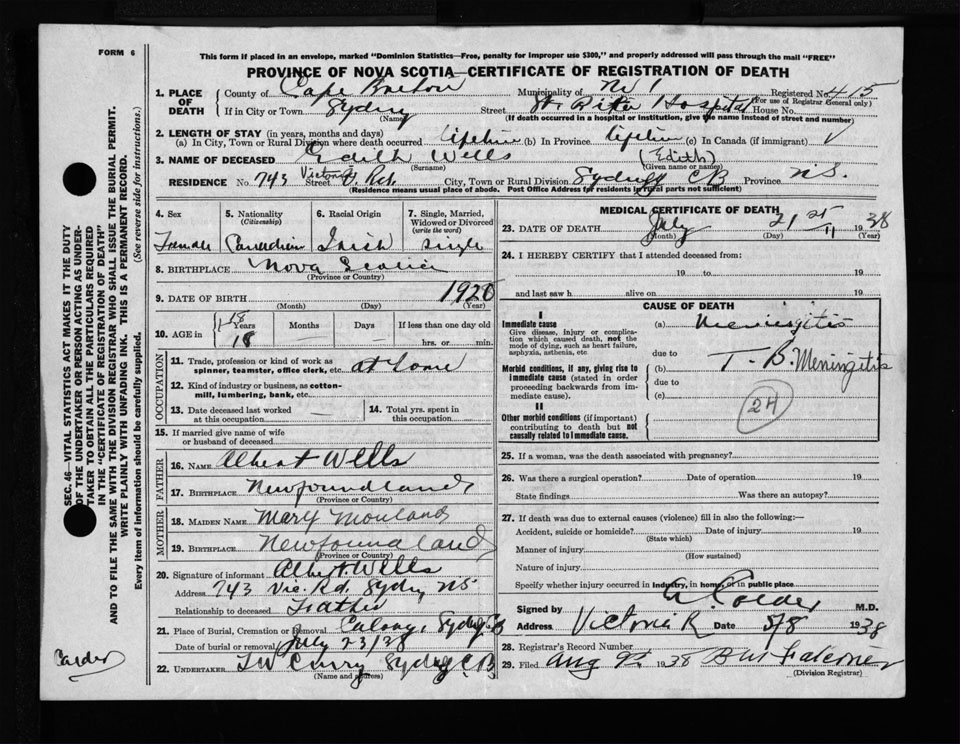 FORM 6
This form if placed in an envelope, marked "Dominion Statistics—Free, penalty for improper use $300," and properly addressed will pass through the mail "FREE"
PROVINCE OF NOVA SCOTIA—CERTIFICATE OF REGISTRATION OF DEATH
1. PLACE OF DEATH County of Cape Breton Municipality of No 1 Registered No. 415
(For use of Registrar General only)
If in City or Town Sydney (Name) Street St. Rita Hospital House No.
(If death occurred in a hospital or institution, give the name instead of street and number)
2. LENGTH OF STAY (in years, months and days)
(a) In City, Town or Rural Division where death occurred lifetime (b) In Province lifetime (c) In Canada (if immigrant)
3. NAME OF DECEASED Edith Wells (Surname) (Edith) (Given name or names)
RESIDENCE No. 743 Street Victoria Rd. City, Town or Rural Division Sydney CB Province N.S.
(Residence means usual place of abode. Post Office Address for residents in rural parts not sufficient)
4. Sex Female
5. Nationality (Citizenship) Canadian
6. Racial Origin Irish
7. Single, Married, Widowed or Divorced (write the word) single
8. BIRTHPLACE Nova Scotia
(Province or Country)
9. DATE OF BIRTH (Month) (Day) 1920 (Year)
10. AGE in 18 Years 18 Months — Days — If less than one day old hrs. or min.
OCCUPATION
11. Trade, profession or kind of work as spinner, teamster, office clerk, etc. at home
12. Kind of industry or business, as cotton-mill, lumbering, bank, etc.
13. Date deceased last worked at this occupation —
14. Total yrs. spent in this occupation
15. If married give name of wife or husband of deceased
FATHER
16. NAME Albert Wells
17. BIRTHPLACE Newfoundland
(Province or Country)
MOTHER
18. MAIDEN NAME Mary Mouland
19. BIRTHPLACE Newfoundland
(Province or Country)
20. Signature of informant Albert Wells
Address 743 Vic. Rd. Sydney NS.
Relationship to deceased Father
21. Place of Burial, Cremation or Removal Sydney CB
Date of burial or removal July 23/38
22. UNDERTAKER Curry Sydney C.B
(Name and address)
MEDICAL CERTIFICATE OF DEATH
23. DATE OF DEATH July (Month) 21st (Day) 1938 (Year)
24. I HEREBY CERTIFY that I attended deceased from:
19 to 19
and last saw h alive on 19
CAUSE OF DEATH
I
Immediate cause
Give disease, injury or complication which caused death, not the mode of dying, such as heart failure, asphyxia, asthenia, etc.
(a) Meningitis
due to
Morbid conditions, if any, giving rise to immediate cause (stated in order proceeding backwards from immediate cause).
(b) T. B. Meningitis
due to
(c)
24
II
Other morbid conditions (if important) contributing to death but not causally related to immediate cause.
25. If a woman, was the death associated with pregnancy?
26. Was there a surgical operation? Date of operation 19
State findings Was there an autopsy?
27. If death was due to external causes (violence) fill in also the following:—
Accident, suicide or homicide? Date of injury 19
(State which)
Manner of injury
(How sustained)
Nature of injury
Specify whether injury occurred in industry, in home, or in public place
Signed by A. Calder M.D.
Address Victoria R Date 5/8 1938
28. Registrar's Record Number
29. Filed Aug 9 1938
(Division Registrar)
SEC. 46—VITAL STATISTICS ACT MAKES IT THE DUTY OF THE UNDERTAKER OR PERSON ACTING AS UNDERTAKER TO OBTAIN ALL THE PARTICULARS REQUIRED IN THE "CERTIFICATE OF REGISTRATION OF DEATH" AND TO FILE THE SAME WITH THE DIVISION REGISTRAR WHO SHALL ISSUE THE BURIAL PERMIT.
WRITE PLAINLY WITH UNFADING INK. THIS IS A PERMANENT RECORD.
Every item of information should be carefully supplied. (See reverse side for instructions.)
Calder